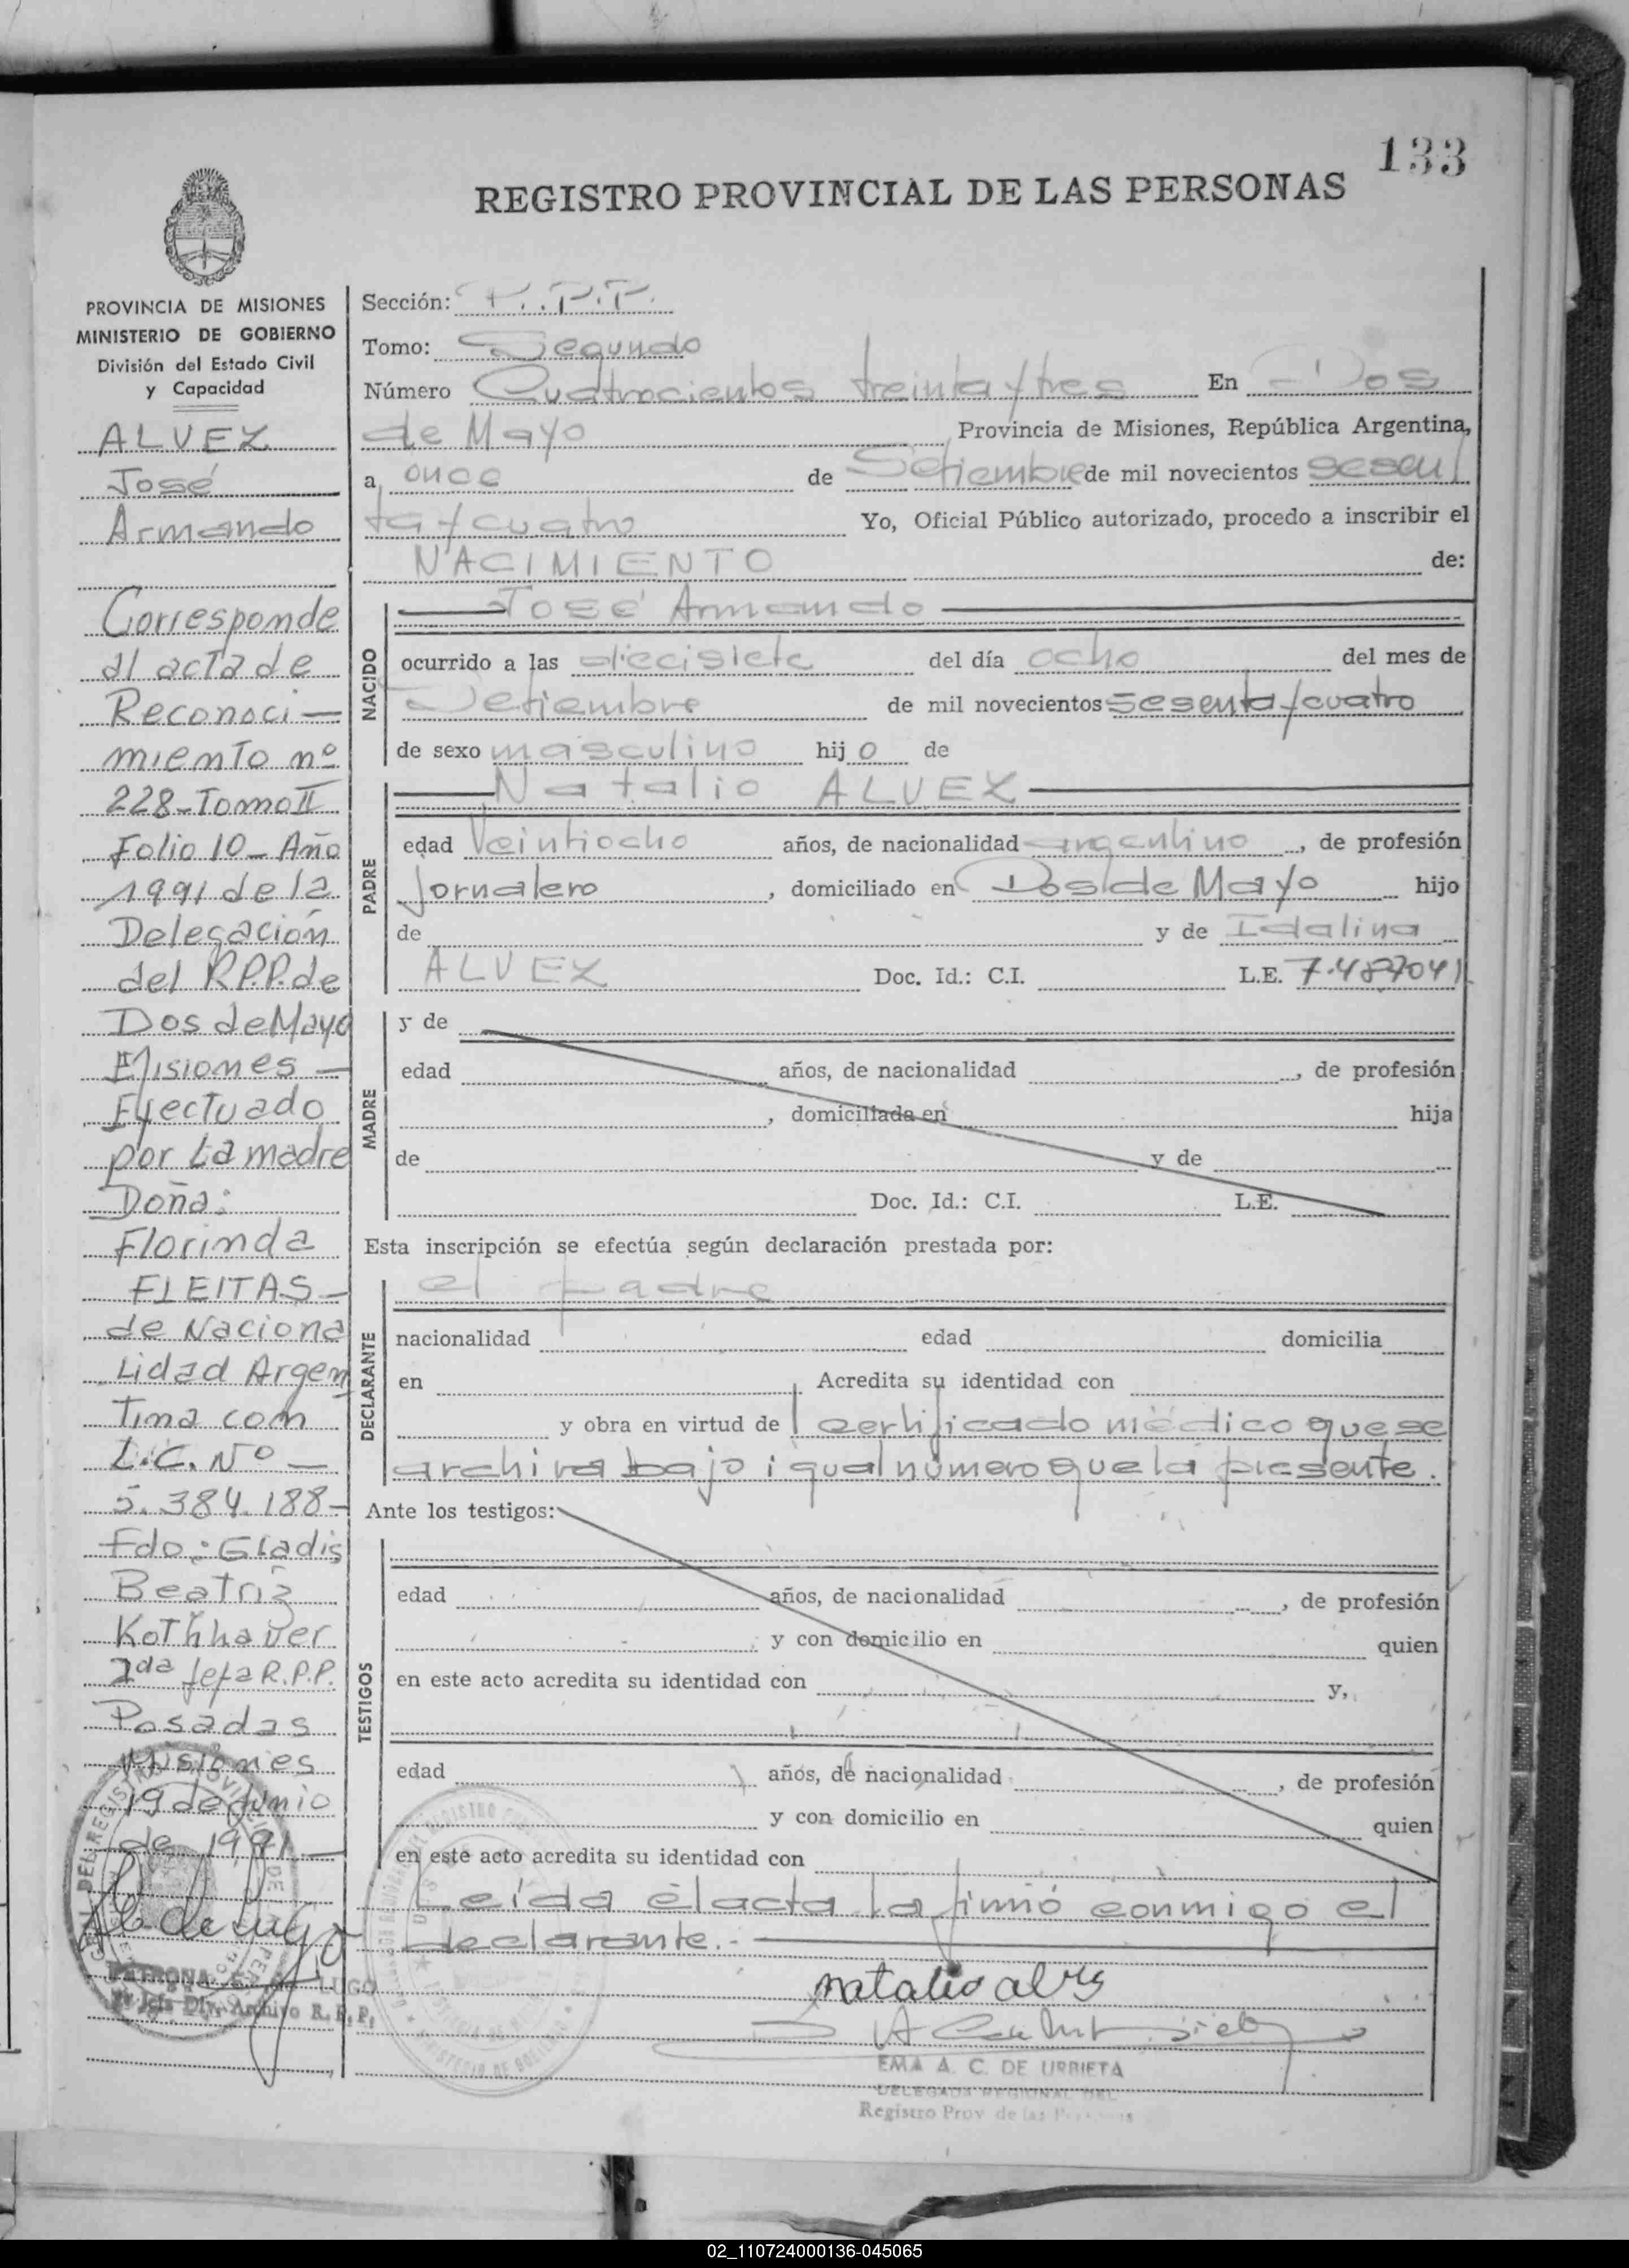 133
REGISTRO PROVINCIAL DE LAS PERSONAS
PROVINCIA DE MISIONES
MINISTERIO DE GOBIERNO
División del Estado Civil
y Capacidad
ALVEZ
José
Armando
Corresponde
al acta de
Reconoci-
miento nº
228-Tomo II
Folio 10-Año
1991 de la
Delegación
del R.P.P. de
Dos de Mayo
Misiones-
Efectuado
por La madre
Doña:
Florinda
FLEITAS-
de Naciona
Lidad Argen
Tina con
L.C. Nº-
5.384.188-
Fdo: Gladis
Beatriz
2da Jefa R.P.P.
Posadas
Misiones
19 de Junio
de 1991-
Sección: R.P.P.
Tomo: Segundo
Número Cuatrocientos treinta y tres En Dos
de Mayo, Provincia de Misiones, República Argentina,
a once de Setiembre de mil novecientos sesen
ta y cuatro Yo, Oficial Público autorizado, procedo a inscribir el
NACIMIENTO de:
NACIDO
José Armando
ocurrido a las diecisiete del día ocho del mes de
Setiembre de mil novecientos sesenta y cuatro
de sexo masculino hijo de
PADRE
Natalio ALVEZ
edad Veintiocho años, de nacionalidad argentino, de profesión
Jornalero, domiciliado en Dos de Mayo hijo
de y de Idalina
ALVEZ Doc. Id.: C.I. L.E. 7.487041
MADRE
y de
edad años, de nacionalidad , de profesión
, domiciliada en hija
de y de
Doc. Id.: C.I. L.E.
Esta inscripción se efectúa según declaración prestada por:
DECLARANTE
el padre
nacionalidad edad domicilia
en Acredita su identidad con
y obra en virtud de certificado médico que se
archiva bajo igual número que la presente.
Ante los testigos:
TESTIGOS
edad años, de nacionalidad , de profesión
y con domicilio en quien
en este acto acredita su identidad con y,
edad años, de nacionalidad , de profesión
y con domicilio en quien
en este acto acredita su identidad con
Leída el acta la firmó conmigo el
declarante.-
natalio alves
EMA A. C. DE URRIETA
DELEGADA REGIONAL DEL
Registro Prov de las Personas
LUGO
Archivo R.P.P.
02_110724000136-045065